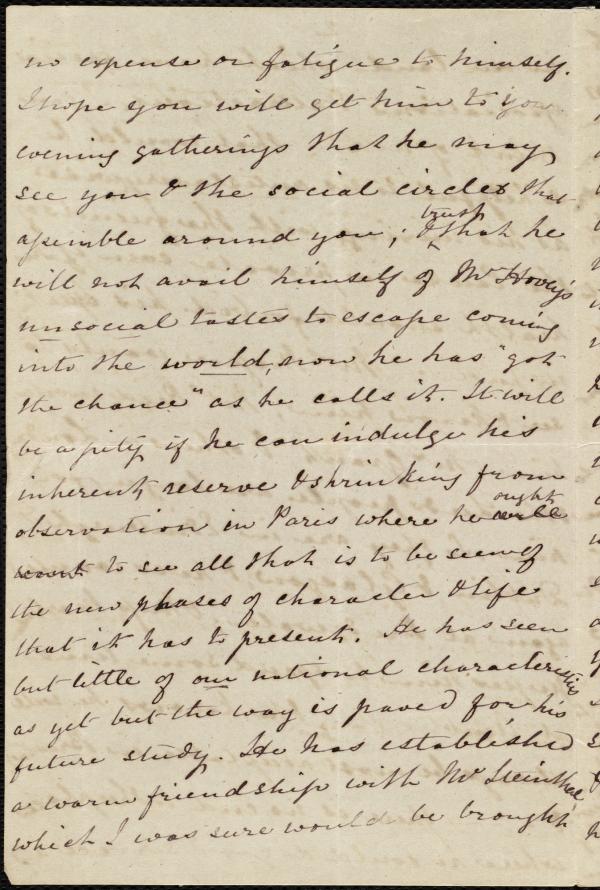 no expense or fatigue to himself.
I hope you will get him to your
evening gatherings that he may
see you & the social circles that
assemble around you; & trust that he
will not avail himself of Mr Hovey's
unsocial tastes to escape coming
into the world, now he has "got
the chance" as he calls it. It will
be a pity if he can indulge his
inherent reserve & shrinking from
observation in Paris where he ought
to see all that is to be seen of
the new phases of character & life
that it has to present. He has seen
but little of our national characteristics
as yet but the way is paved for his
future study. He has established
a warm friendship with Mr Steinthal
which I was sure would be brought